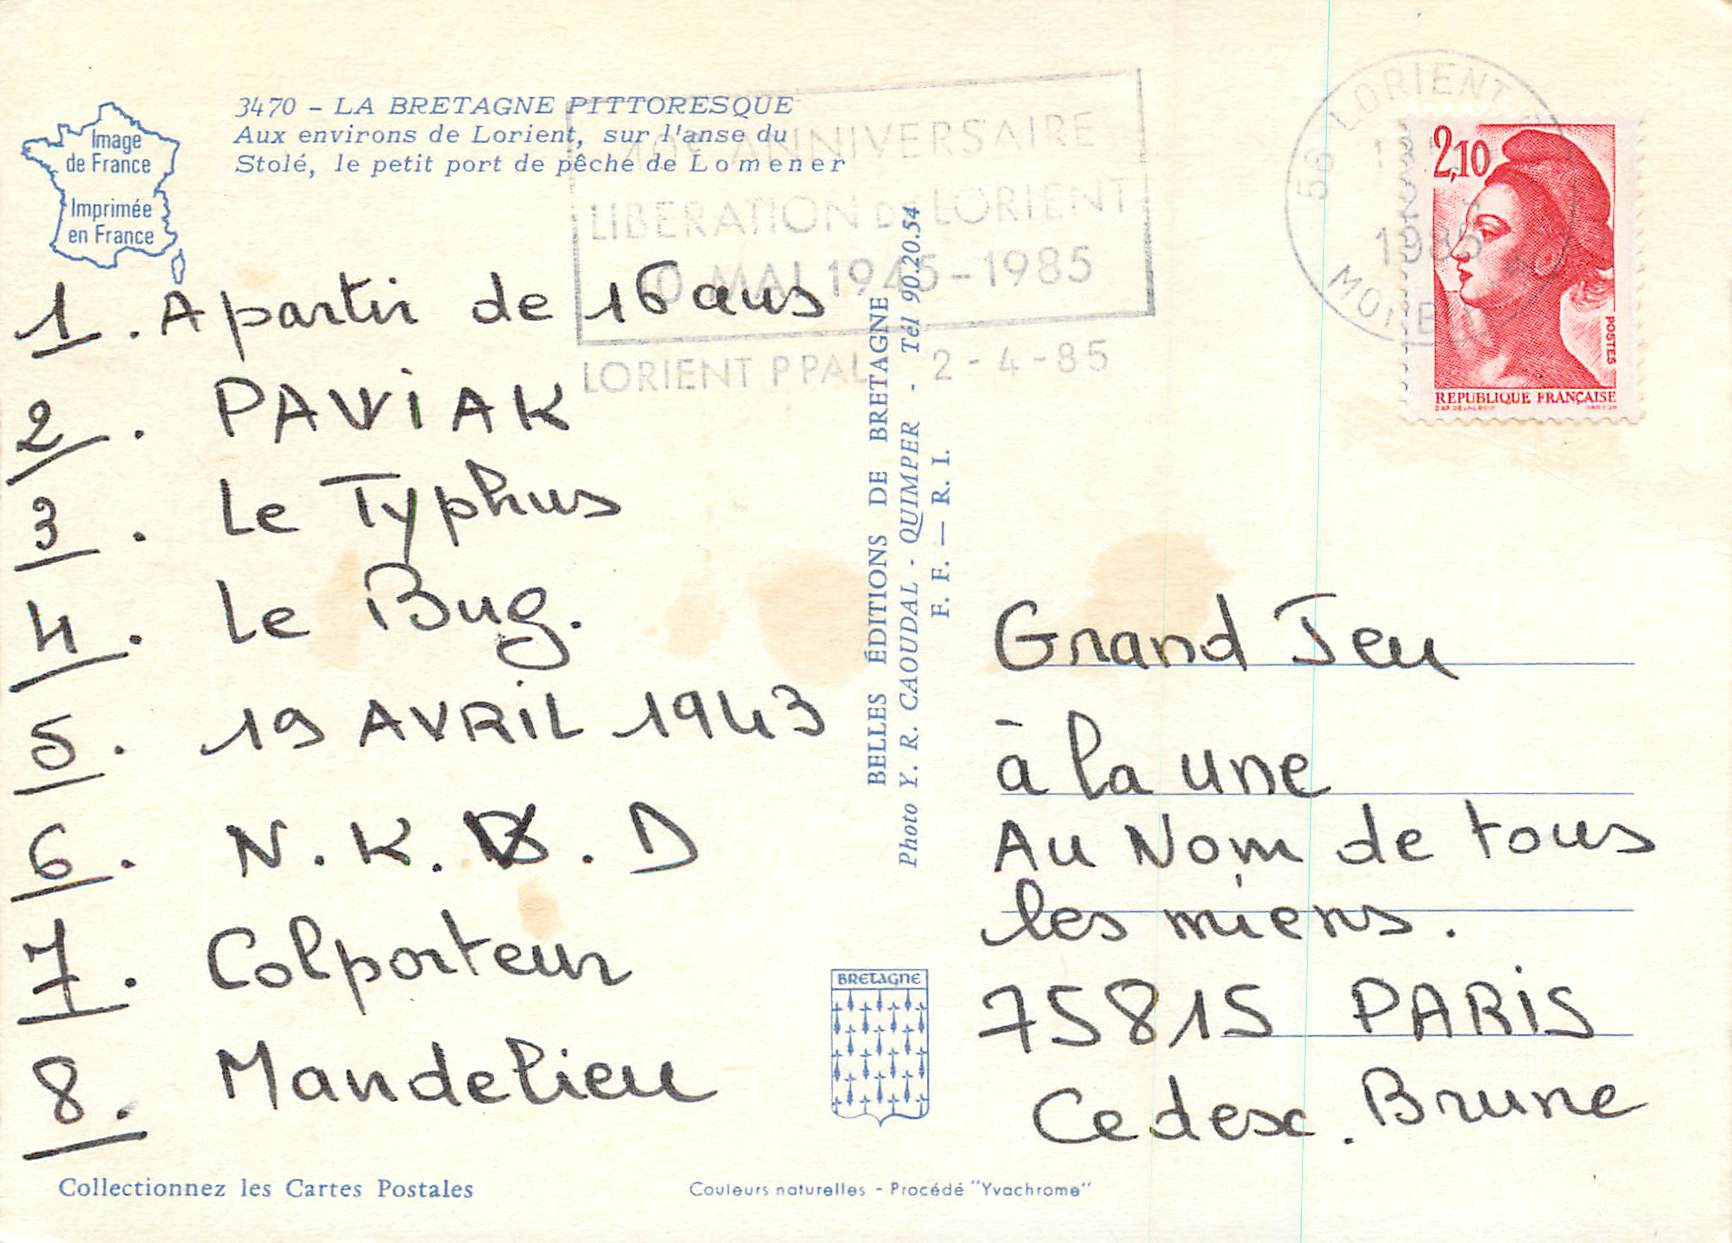 3470 - LA BRETAGNE PITTORESQUE
Aux environs de Lorient, sur l'anse du
Stolé, le petit port de pêche de Lomener
Image
de France
Imprimée
en France
40e ANNIVERSAIRE
LIBERATION DE LORIENT
10 MAI 1945-1985
LORIENT PPAL 2-4-85
56 LORIENT
1985
MORBIHAN
2,10
POSTES
REPUBLIQUE FRANÇAISE
1. A partir de 16 ans
2. PAWIAK
3. Le Typhus
4. Le Bug.
5. 19 AVRIL 1943
6. N.K. .D
7. Colporteur
8. Mandelieu
BELLES ÉDITIONS DE BRETAGNE
Photo Y. R. CAOUDAL - QUIMPER - Tél 90.20.54
F. F. — R. I.
Grand Jeu
à la une
Au Nom de tous
les miens.
75815 PARIS
Cedex. Brune
BRETAGNE
Collectionnez les Cartes Postales
Couleurs naturelles - Procédé "Yvachrome"